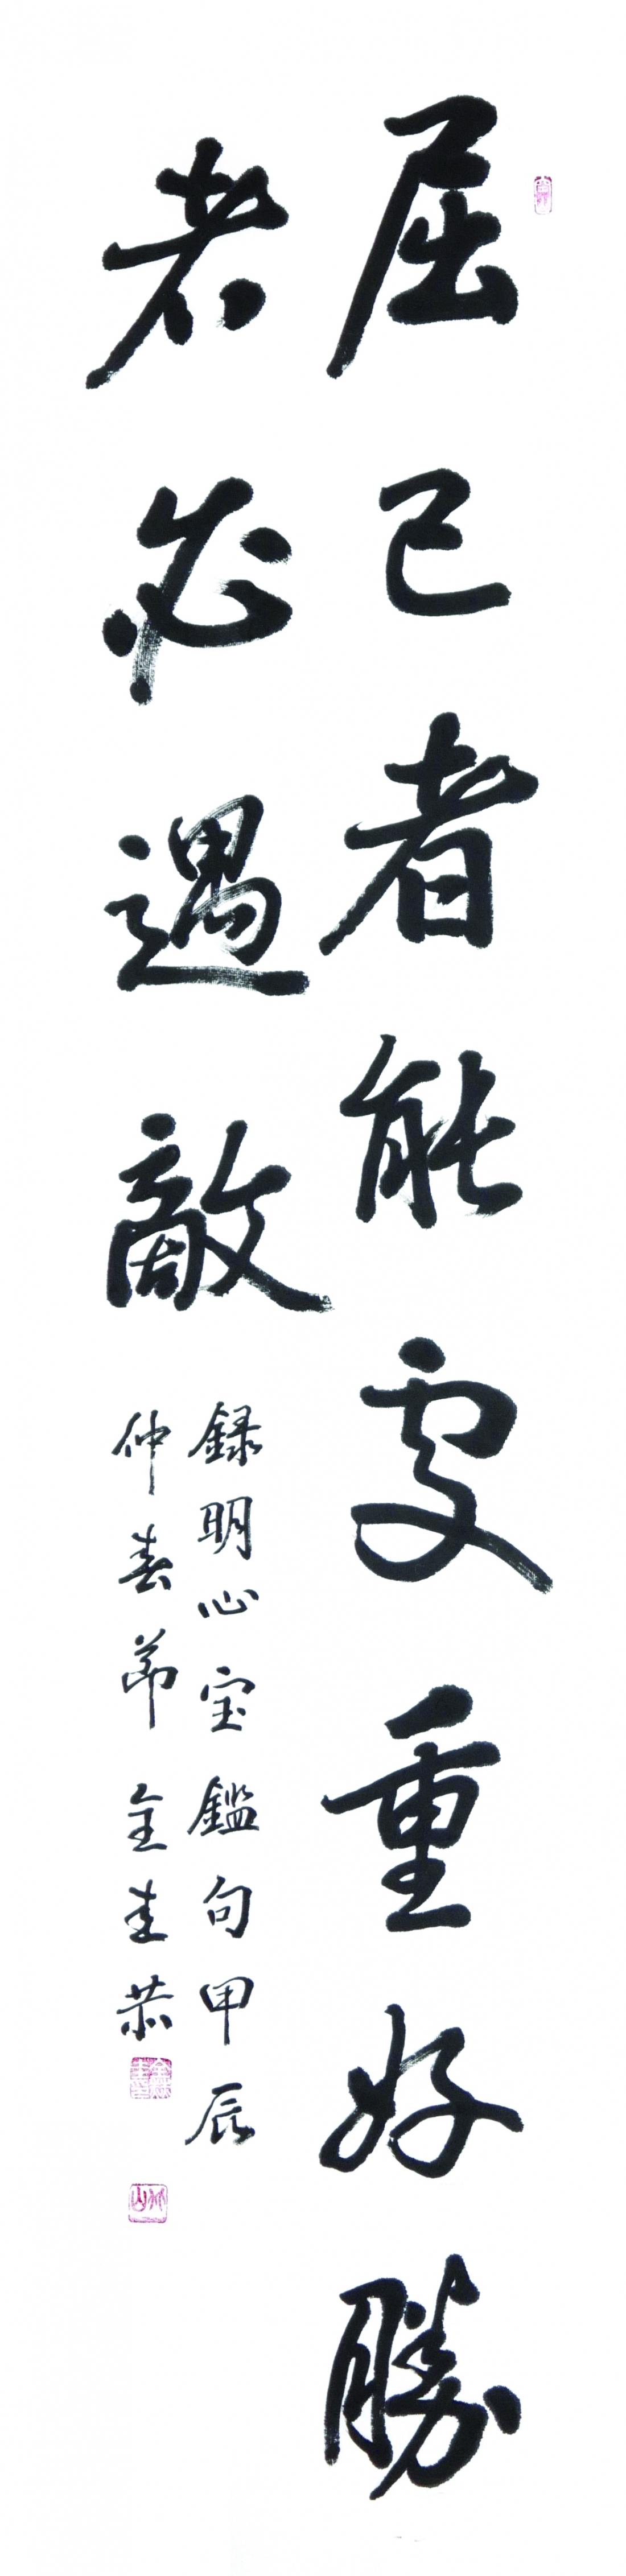 屈己者能處重好勝
者必遇敵
録明心宝鑑句甲辰
仲春節 金圭恭